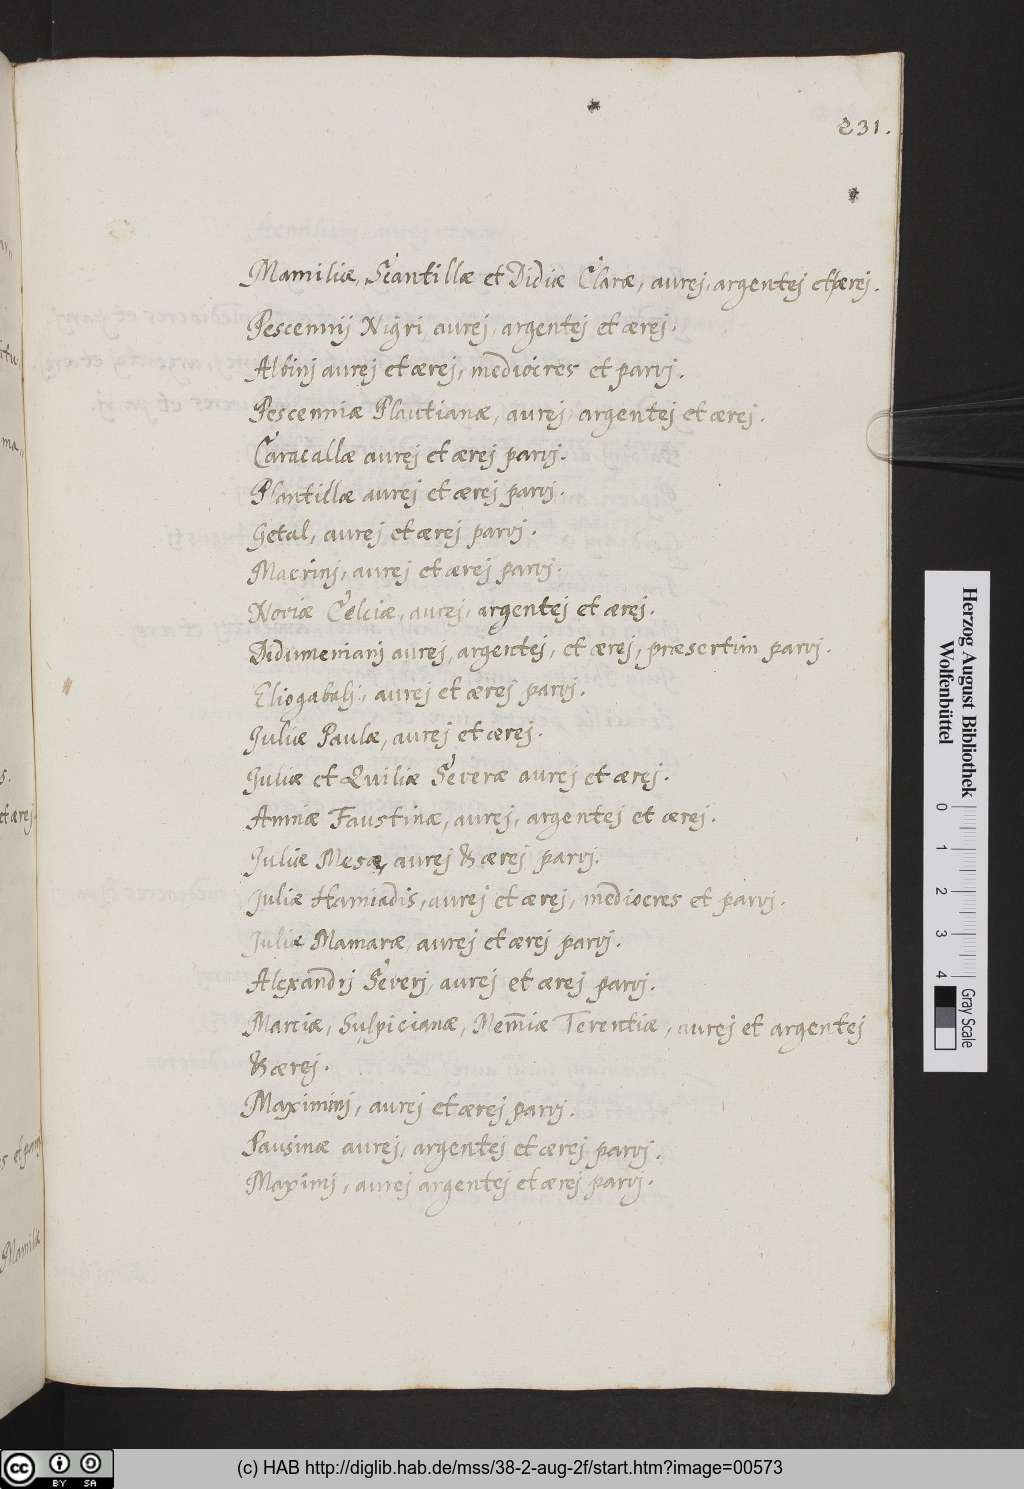 231.
Mamiliæ, Scantillæ et Didiæ Claræ, aurej, argentej et ærej.
Pescennij Nigri aurej, argentej et ærej.
Albinj aurej et ærej, mediocres et parvj.
Pescenniæ Plautianæ, aurej, argentej et ærej.
Caracallæ aurej et ærej parvj.
Plantillæ aurej et ærej parvj.
Getal, aurej et ærej parvj.
Macrinj, aurej et ærej parvj.
Noniæ Celciæ, aurej, argentej et ærej.
Didumenianj aurej, argentej, et ærej, præsertim parvj.
Eliogabalj, aurej et ærej parvj.
Juliæ Paulæ, aurej et ærej.
Juliæ et Quiliæ Severæ aurej et ærej.
Anniæ Faustinæ, aurej, argentej et ærej.
Juliæ Mesæ, aurej & ærej parvj.
Juliæ Hamiadis, aurej et ærej, mediocres et parvj.
Juliæ Mamaræ, aurej et ærej parvj.
Alexandrj Severj, aurej et ærej parvj.
Martiæ, Sulpicianæ, Mem̄iæ Terentiæ, aurej et argentej
& ærej.
Maximinj, aurej et ærej parvj.
Pausinæ aurej, argentej et ærej parvj.
Maximj, aurej argentej et ærej parvj.
et ærej.
Mamiliæ
Herzog August Bibliothek
Wolfenbüttel
0 1 2 3 4
Gray Scale
cc BY SA
(c) HAB http://diglib.hab.de/mss/38-2-aug-2f/start.htm?image=00573